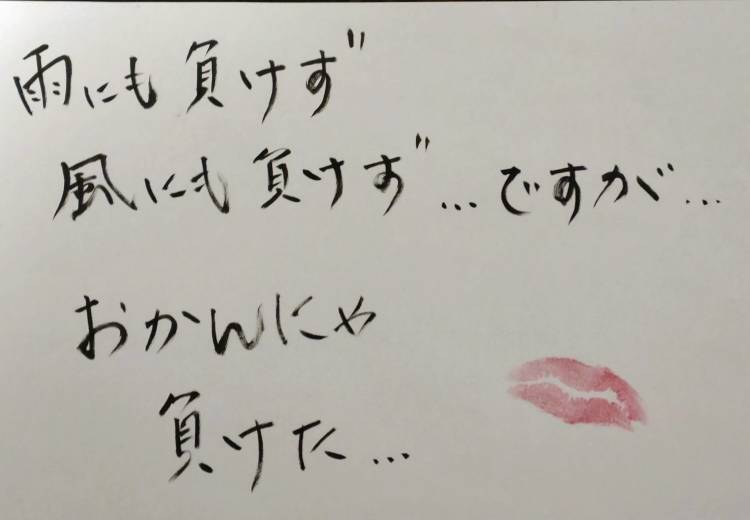 雨にも負けず
風にも負けず…ですが…
おかんにゃ
負けた…